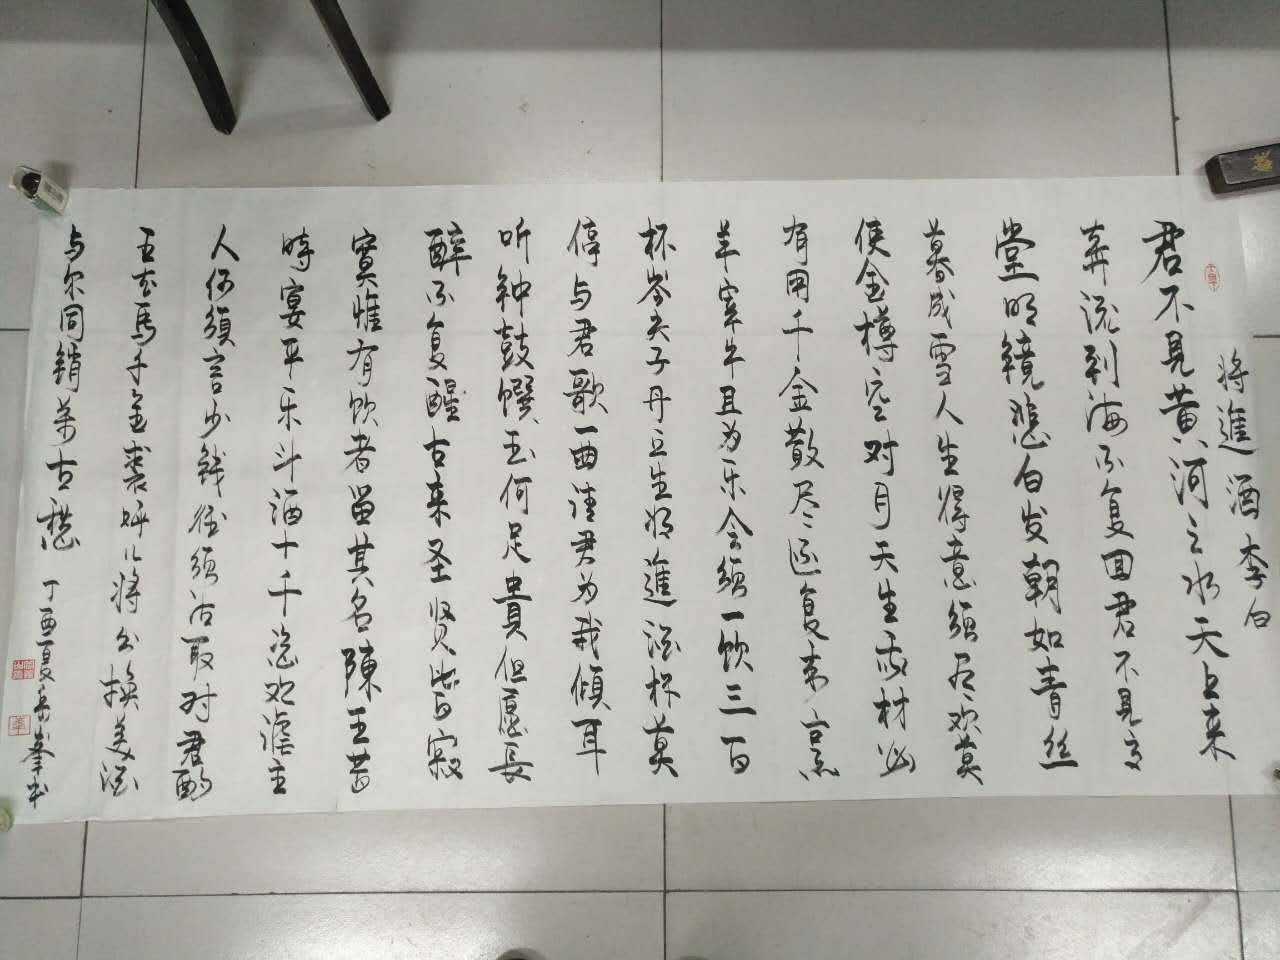 將進酒 李白
君不見黄河之水天上来
奔流到海不复回君不見高
堂明鏡悲白发朝如青丝
暮成雪人生得意须尽欢莫
使金樽空对月天生我材必
有用千金散尽还复来烹
羊宰牛且为乐会须一饮三百
杯岑夫子丹丘生将進酒杯莫
停与君歌一曲请君为我倾耳
听钟鼓馔玉何足貴但愿長
醉不复醒古来圣贤皆寂
寞惟有饮者留其名陳王昔
時宴平乐斗酒十千恣欢谑主
人何須言少錢径須沽取对君酌
五花馬千金裘呼儿將出换美酒
与尔同銷萬古愁
丁酉夏峯书